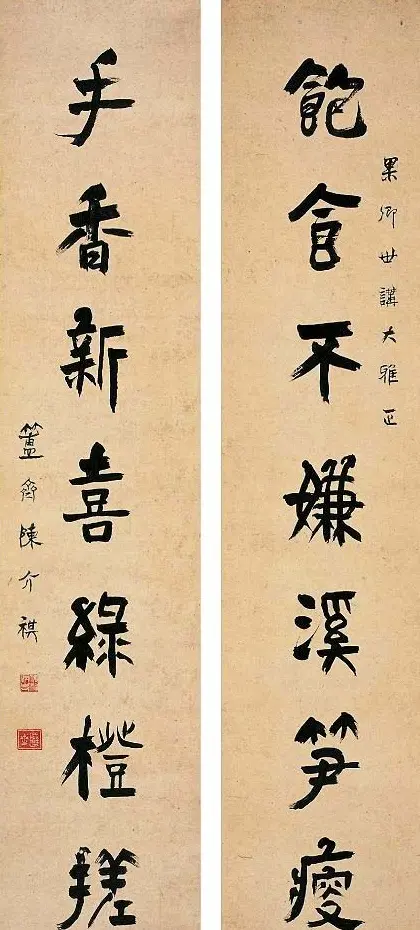 果卿世講大雅正
飽食不嫌溪笋瘦
手香新喜綠橙搓
簠齋陳介祺